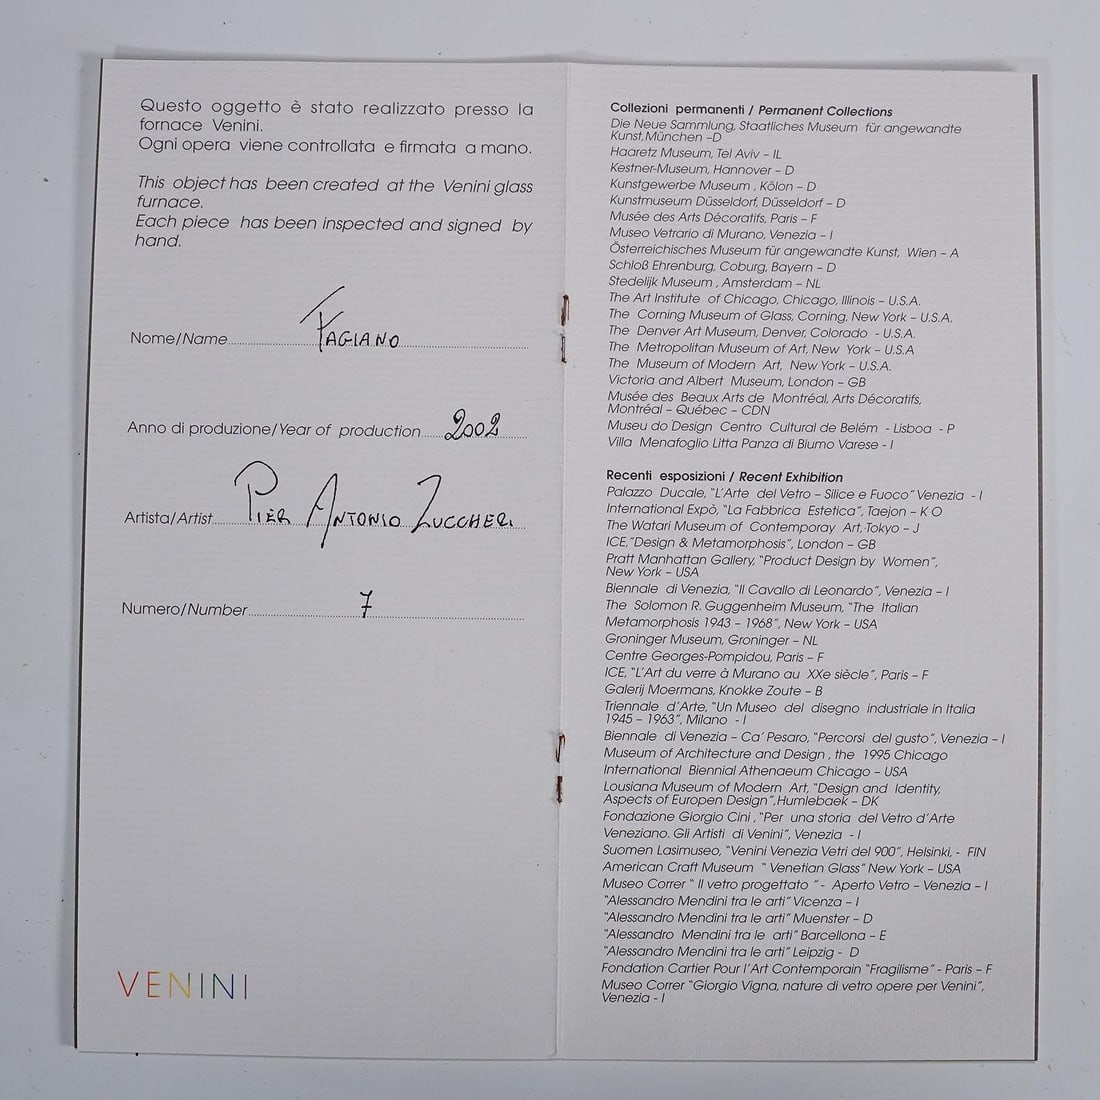 Questo oggetto è stato realizzato presso la
fornace Venini.
Ogni opera viene controllata e firmata a mano.
This object has been created at the Venini glass
furnace.
Each piece has been inspected and signed by
hand.
Nome/Name FAGIANO
Anno di produzione/Year of production 2002
Artista/Artist PIER ANTONIO ZUCCHERI
Numero/Number 7
VENINI
Collezioni permanenti / Permanent Collections
Die Neue Sammlung, Staatliches Museum für angewandte
Kunst, München -D
Haaretz Museum, Tel Aviv – IL
Kestner-Museum, Hannover – D
Kunstgewerbe Museum , Kölon – D
Kunstmuseum Düsseldorf, Düsseldorf – D
Musée des Arts Décoratifs, Paris – F
Museo Vetrario di Murano, Venezia – I
Österreichisches Museum für angewandte Kunst, Wien – A
Schloß Ehrenburg, Coburg, Bayern – D
Stedelijk Museum , Amsterdam – NL
The Art Institute of Chicago, Chicago, Illinois – U.S.A.
The Corning Museum of Glass, Corning, New York – U.S.A.
The Denver Art Museum, Denver, Colorado - U.S.A.
The Metropolitan Museum of Art, New York – U.S.A
The Museum of Modern Art, New York – U.S.A.
Victoria and Albert Museum, London – GB
Musée des Beaux Arts de Montréal, Arts Décoratifs,
Montréal – Québec – CDN
Museu do Design Centro Cultural de Belém - Lisboa - P
Villa Menafoglio Litta Panza di Biumo Varese - I
Recenti esposizioni / Recent Exhibition
Palazzo Ducale, "L'Arte del Vetro – Silice e Fuoco" Venezia - I
International Expò, "La Fabbrica Estetica", Taejon – K O
The Watari Museum of Contemporay Art, Tokyo – J
ICE,"Design & Metamorphosis", London – GB
Pratt Manhattan Gallery, "Product Design by Women",
New York – USA
Biennale di Venezia, "Il Cavallo di Leonardo", Venezia – I
The Solomon R. Guggenheim Museum, "The Italian
Metamorphosis 1943 – 1968", New York – USA
Groninger Museum, Groninger – NL
Centre Georges-Pompidou, Paris – F
ICE, "L'Art du verre à Murano au XXe siècle", Paris – F
Galerij Moermans, Knokke Zoute – B
Triennale d'Arte, "Un Museo del disegno industriale in Italia
1945 – 1963", Milano - I
Biennale di Venezia – Ca' Pesaro, "Percorsi del gusto", Venezia – I
Museum of Architecture and Design , the 1995 Chicago
International Biennial Athenaeum Chicago – USA
Lousiana Museum of Modern Art, "Design and Identity,
Aspects of Europen Design",Humlebaek – DK
Fondazione Giorgio Cini , "Per una storia del Vetro d'Arte
Veneziano. Gli Artisti di Venini", Venezia - I
Suomen Lasimuseo, "Venini Venezia Vetri del 900", Helsinki, - FIN
American Craft Museum " Venetian Glass" New York – USA
Museo Correr " Il vetro progettato " - Aperto Vetro – Venezia – I
"Alessandro Mendini tra le arti" Vicenza – I
"Alessandro Mendini tra le arti" Muenster – D
"Alessandro Mendini tra le arti" Barcellona – E
"Alessandro Mendini tra le arti" Leipzig - D
Fondation Cartier Pour l'Art Contemporain "Fragilisme" - Paris – F
Museo Correr "Giorgio Vigna, nature di vetro opere per Venini",
Venezia - I